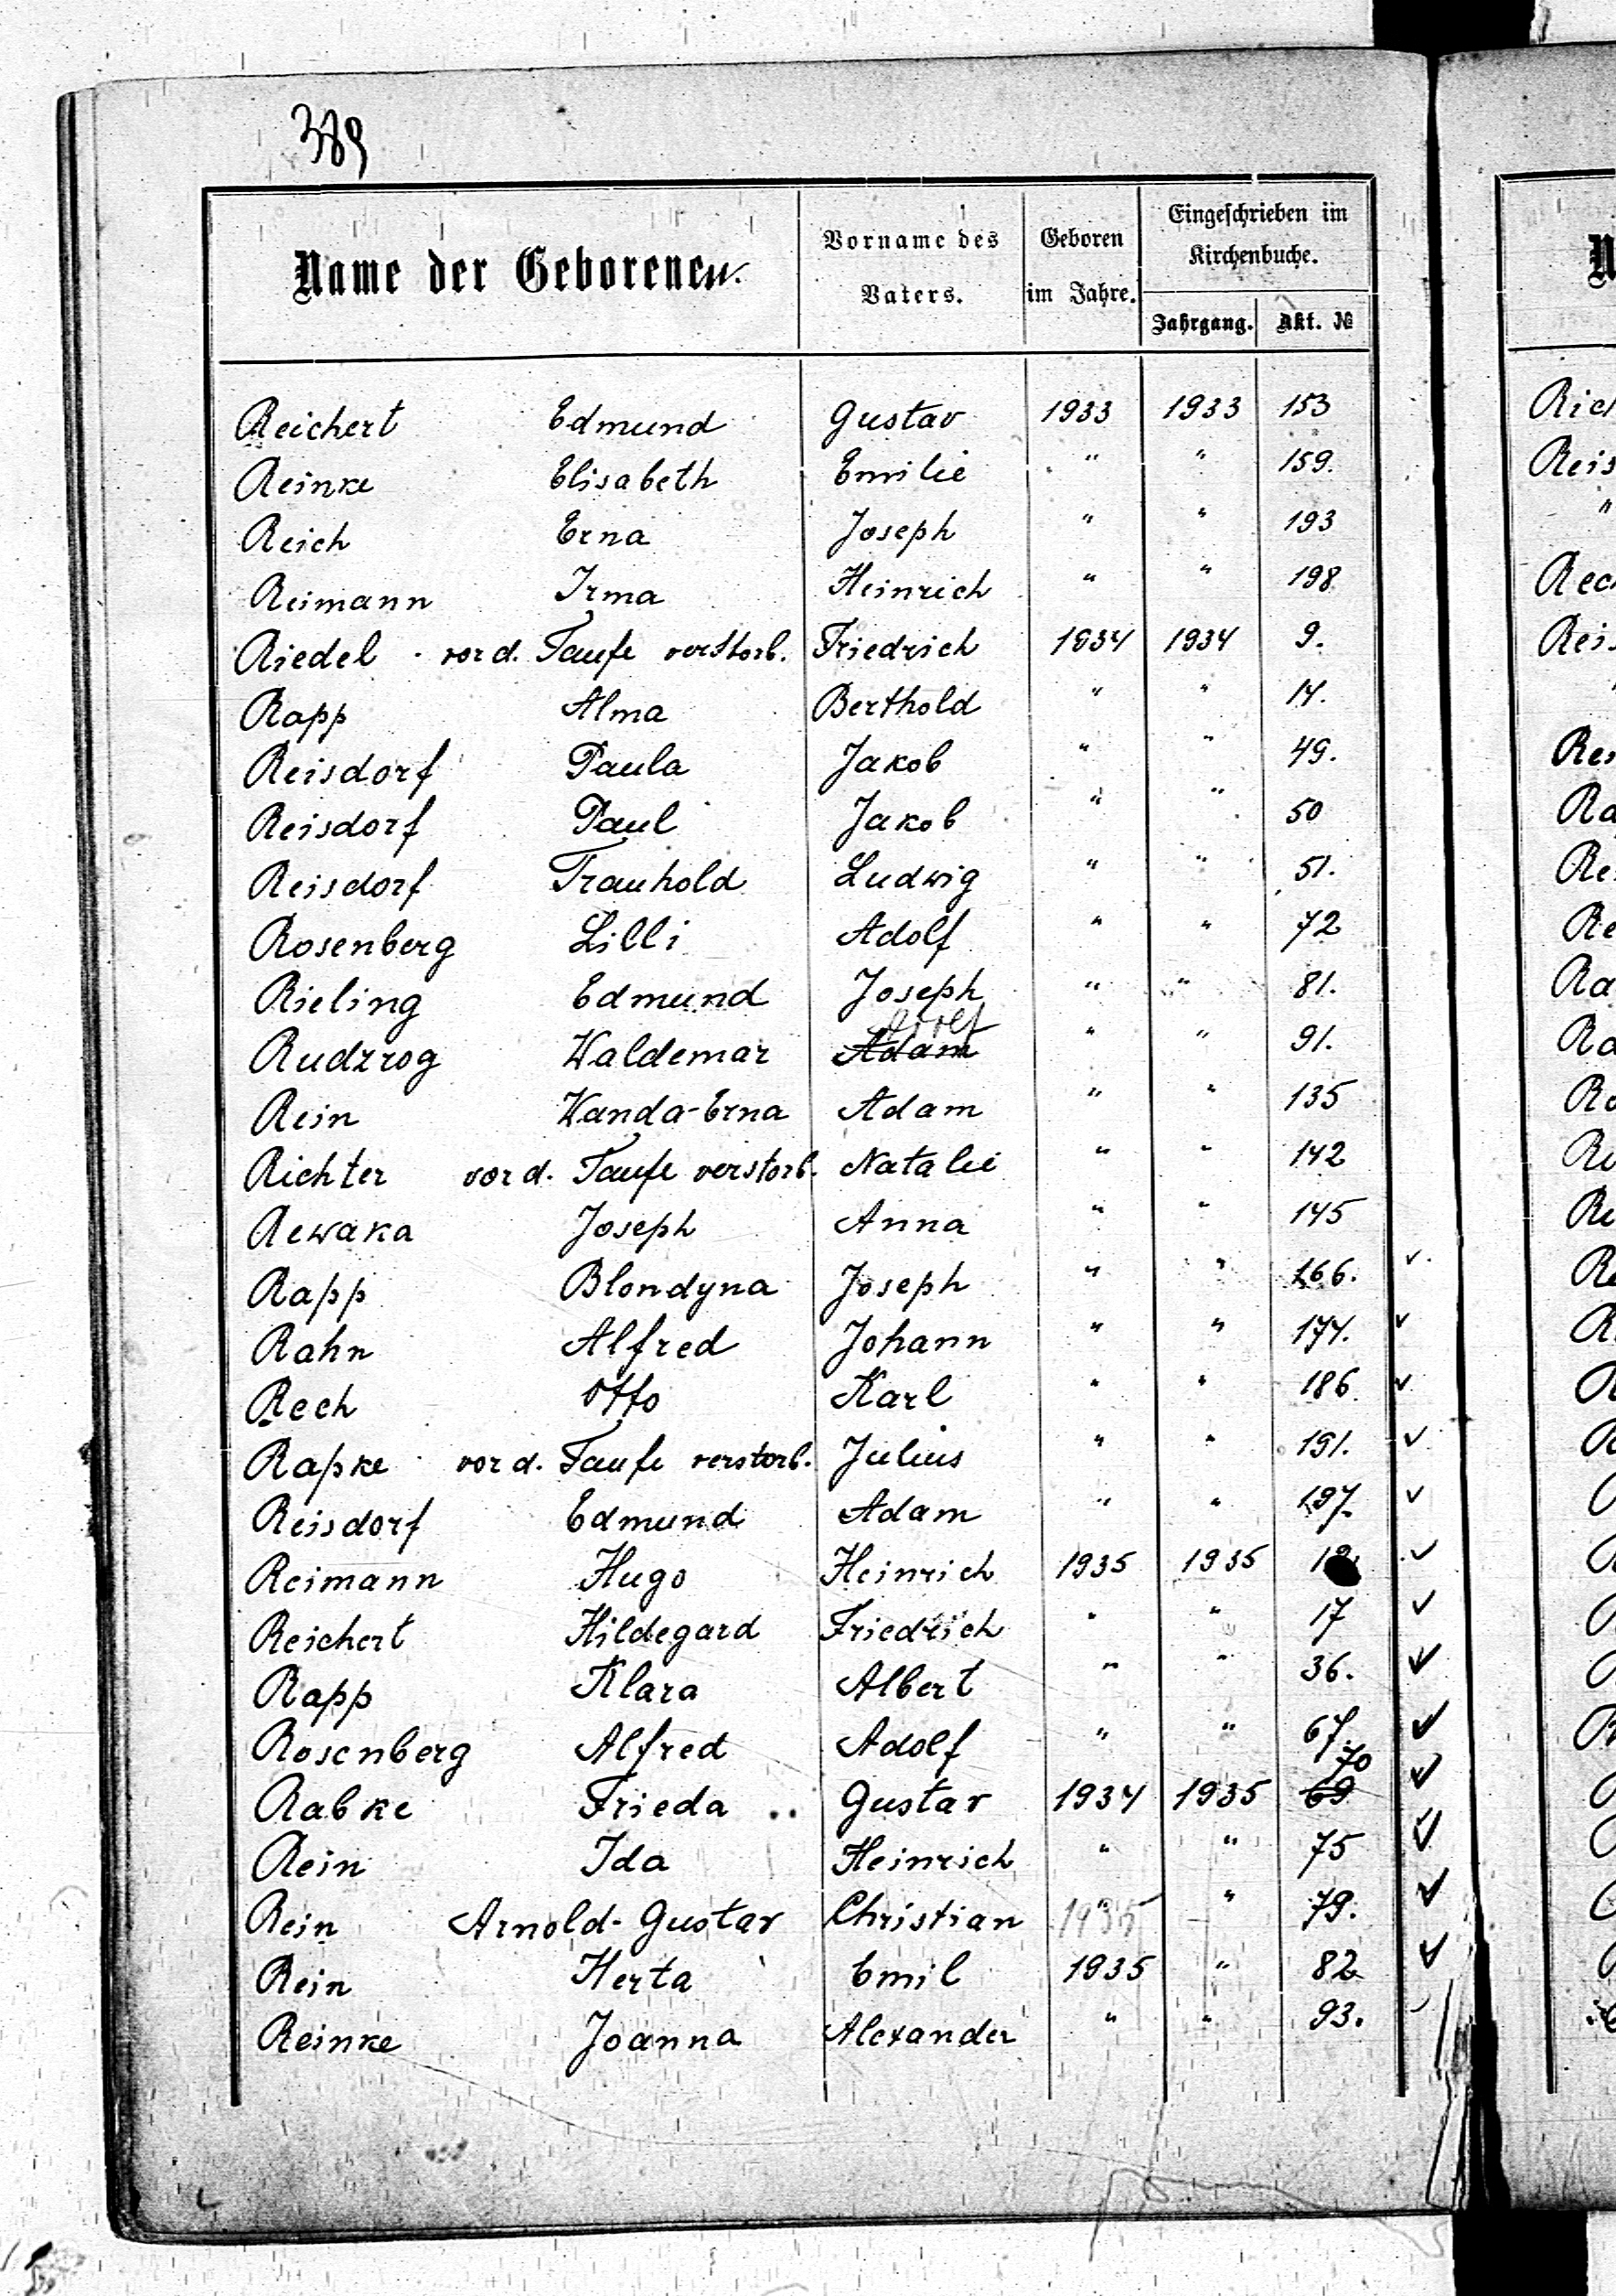 389
Name der Geborenen.
Vorname des Vaters.
Geboren im Jahre.
Eingeschrieben im Kirchenbuche.
Jahrgang.
Akt. №
Reichert Edmund Gustav 1933 1933 153
Reinke Elisabeth Emilie " " 159.
Reich Erna Joseph " " 193
Reimann Irma Heinrich " " 198
Riedel - vor d. Taufe verstorb. Friedrich 1934 1934 9.
Rapp Alma Berthold " " 14.
Reisdorf Paula Jakob " " 49.
Reisdorf Paul Jakob " " 50
Reisdorf Trauhold Ludwig " " 51.
Rosenberg Lilli Adolf " " 72
Rieling Edmund Joseph " " 81.
Rudzrog Waldemar Adam " " 91.
Rein Wanda-Erna Adam " " 135
Richter vor d. Taufe verstorb. Natalie " " 142
Rewaka Joseph Anna " " 145
Rapp Blondyna Joseph " " 166. ✓
Rahn Alfred Johann " " 174. ✓
Rech Otto Karl " " 186 ✓
Rapke vor d. Taufe verstorb. Julius " " 191. ✓
Reisdorf Edmund Adam " " 197. ✓
Reimann Hugo Heinrich 1935 1935 ✓
Reichert Hildegard Friedrich " " 17 ✓
Rapp Klara Albert " " 36. ✓
Rosenberg Alfred Adolf " " 67. ✓
Rabke Frieda .. Gustav 1934 1935 69 70 ✓
Rein Ida Heinrich " " 75 ✓
Rein Arnold-Gustav Christian " 1935 " 79. ✓
Rein Herta Emil 1935 " 82 ✓
Reinke Joanna Alexander " " 93. ✓